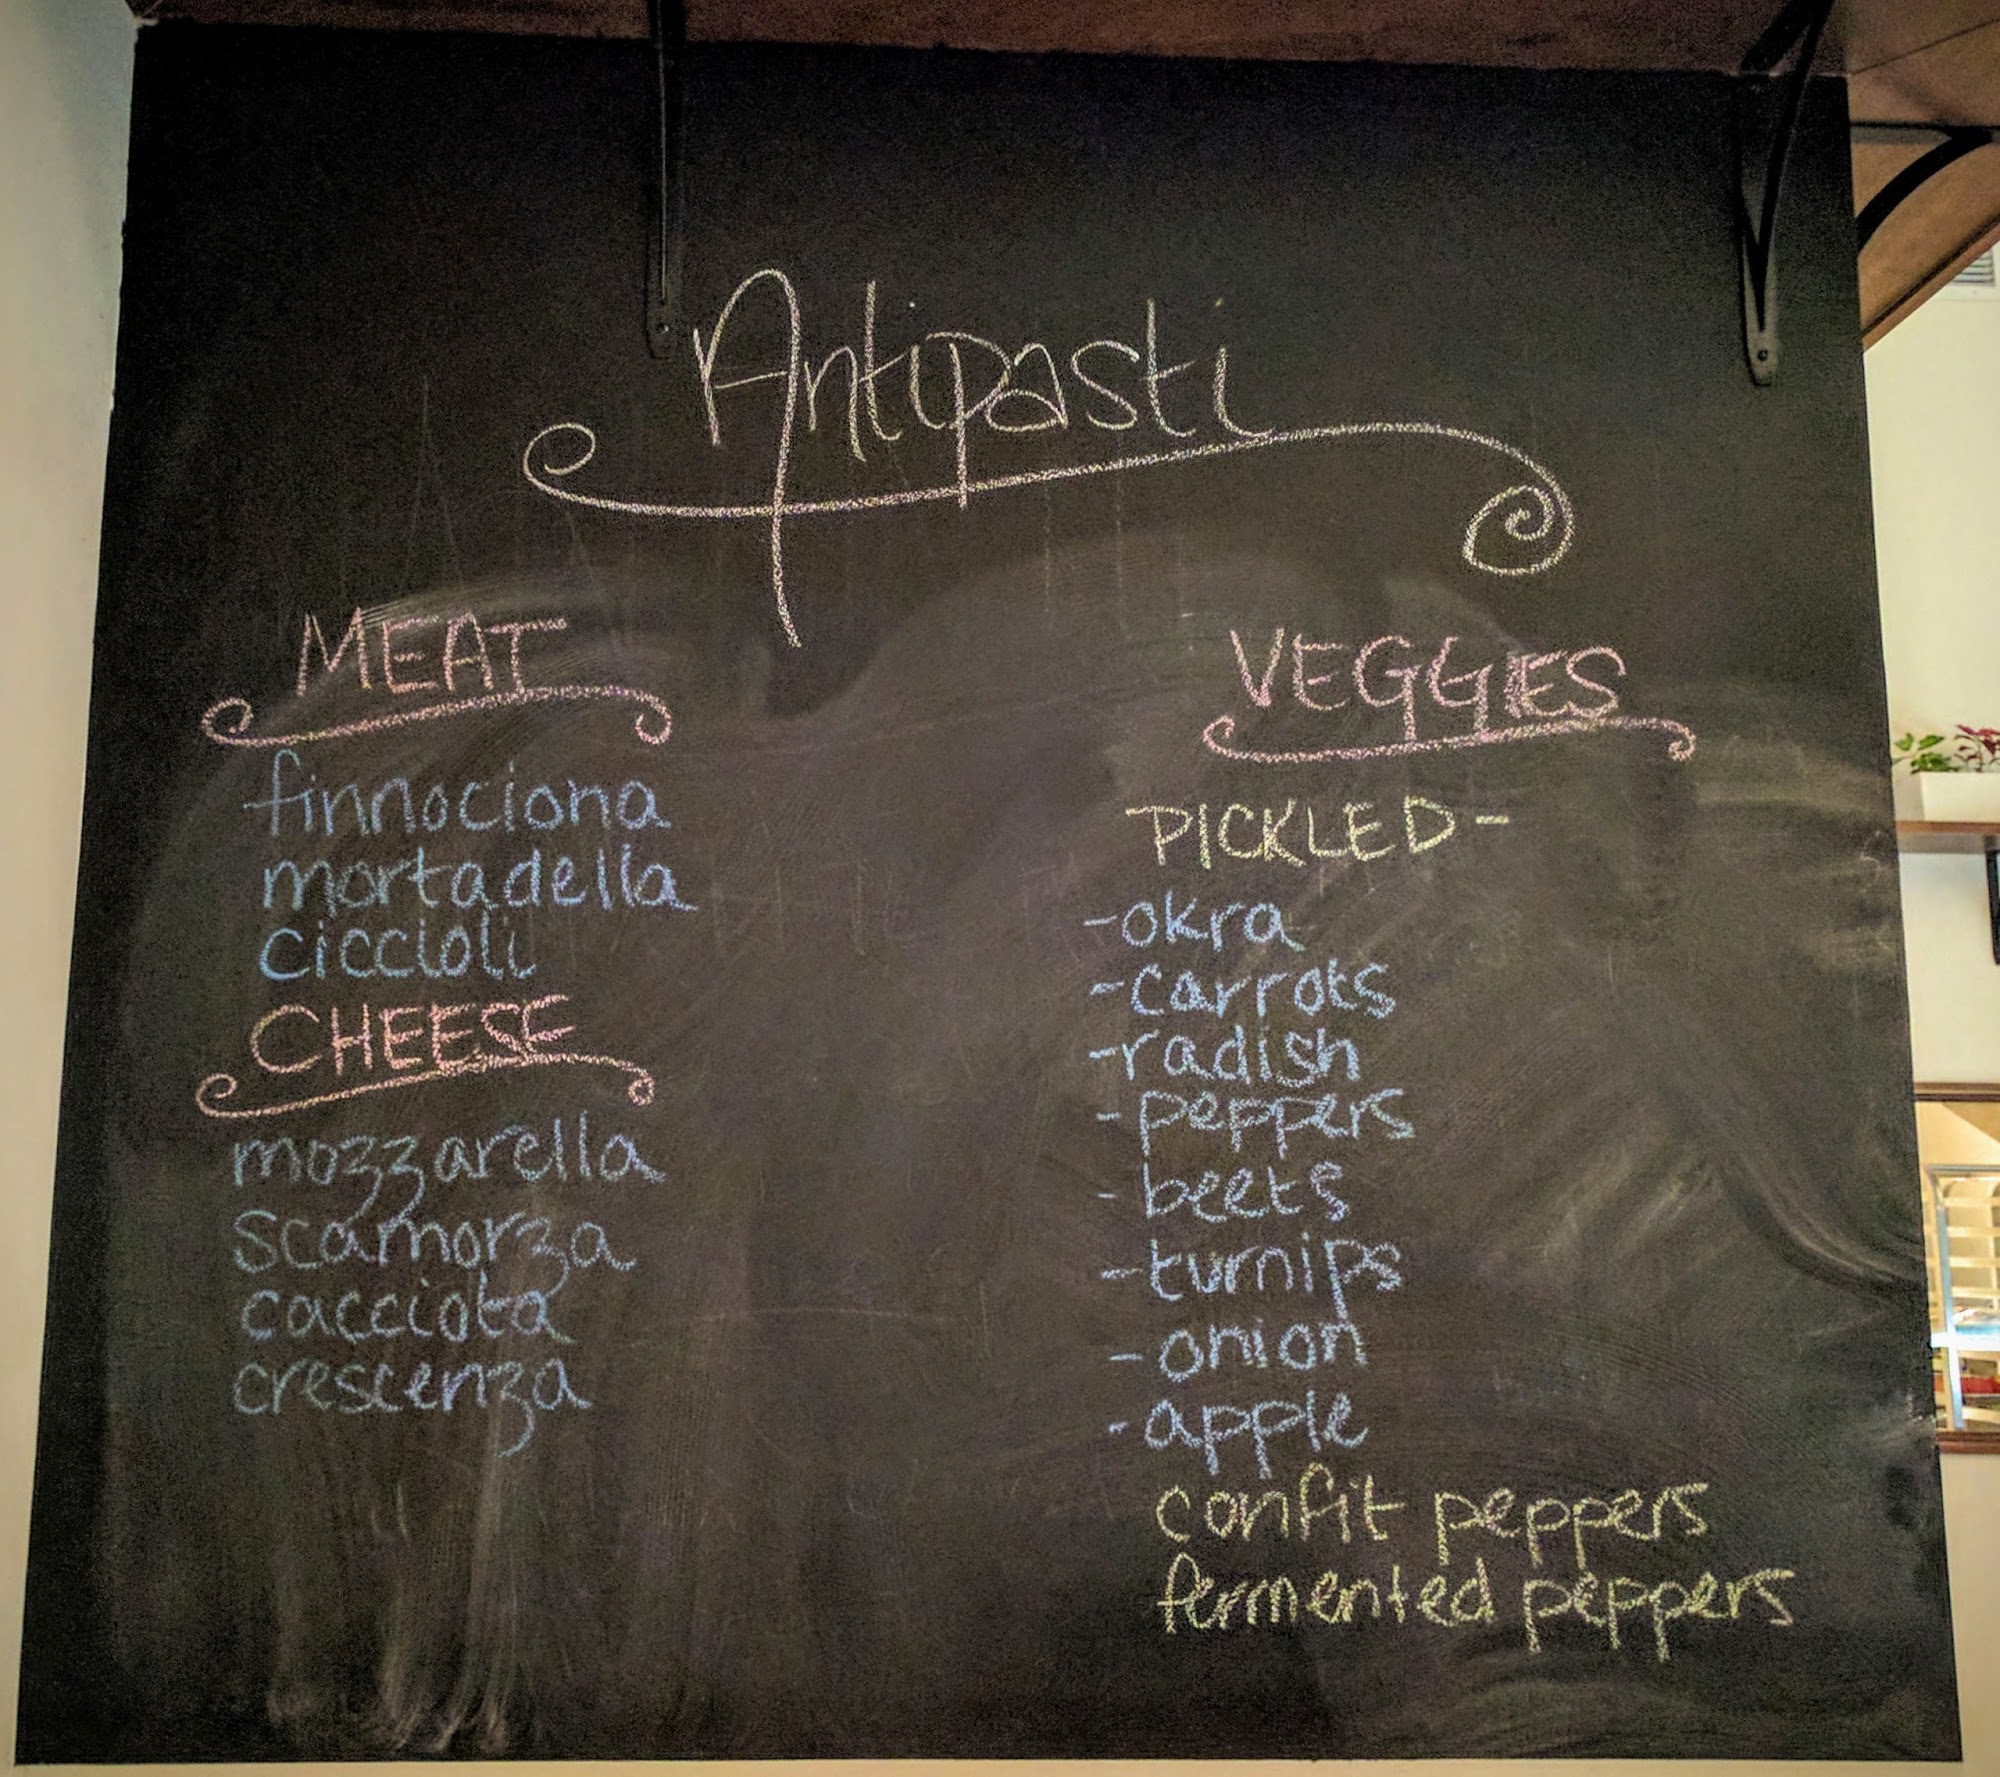 Antipasti
MEAT
finnociona
mortadella
ciccioli
CHEESE
mozzarella
scamorza
cacciota
crescenza
VEGGIES
PICKLED-
-okra
-carrots
-radish
-peppers
-beets
-turnips
-onion
-apple
confit peppers
fermented peppers